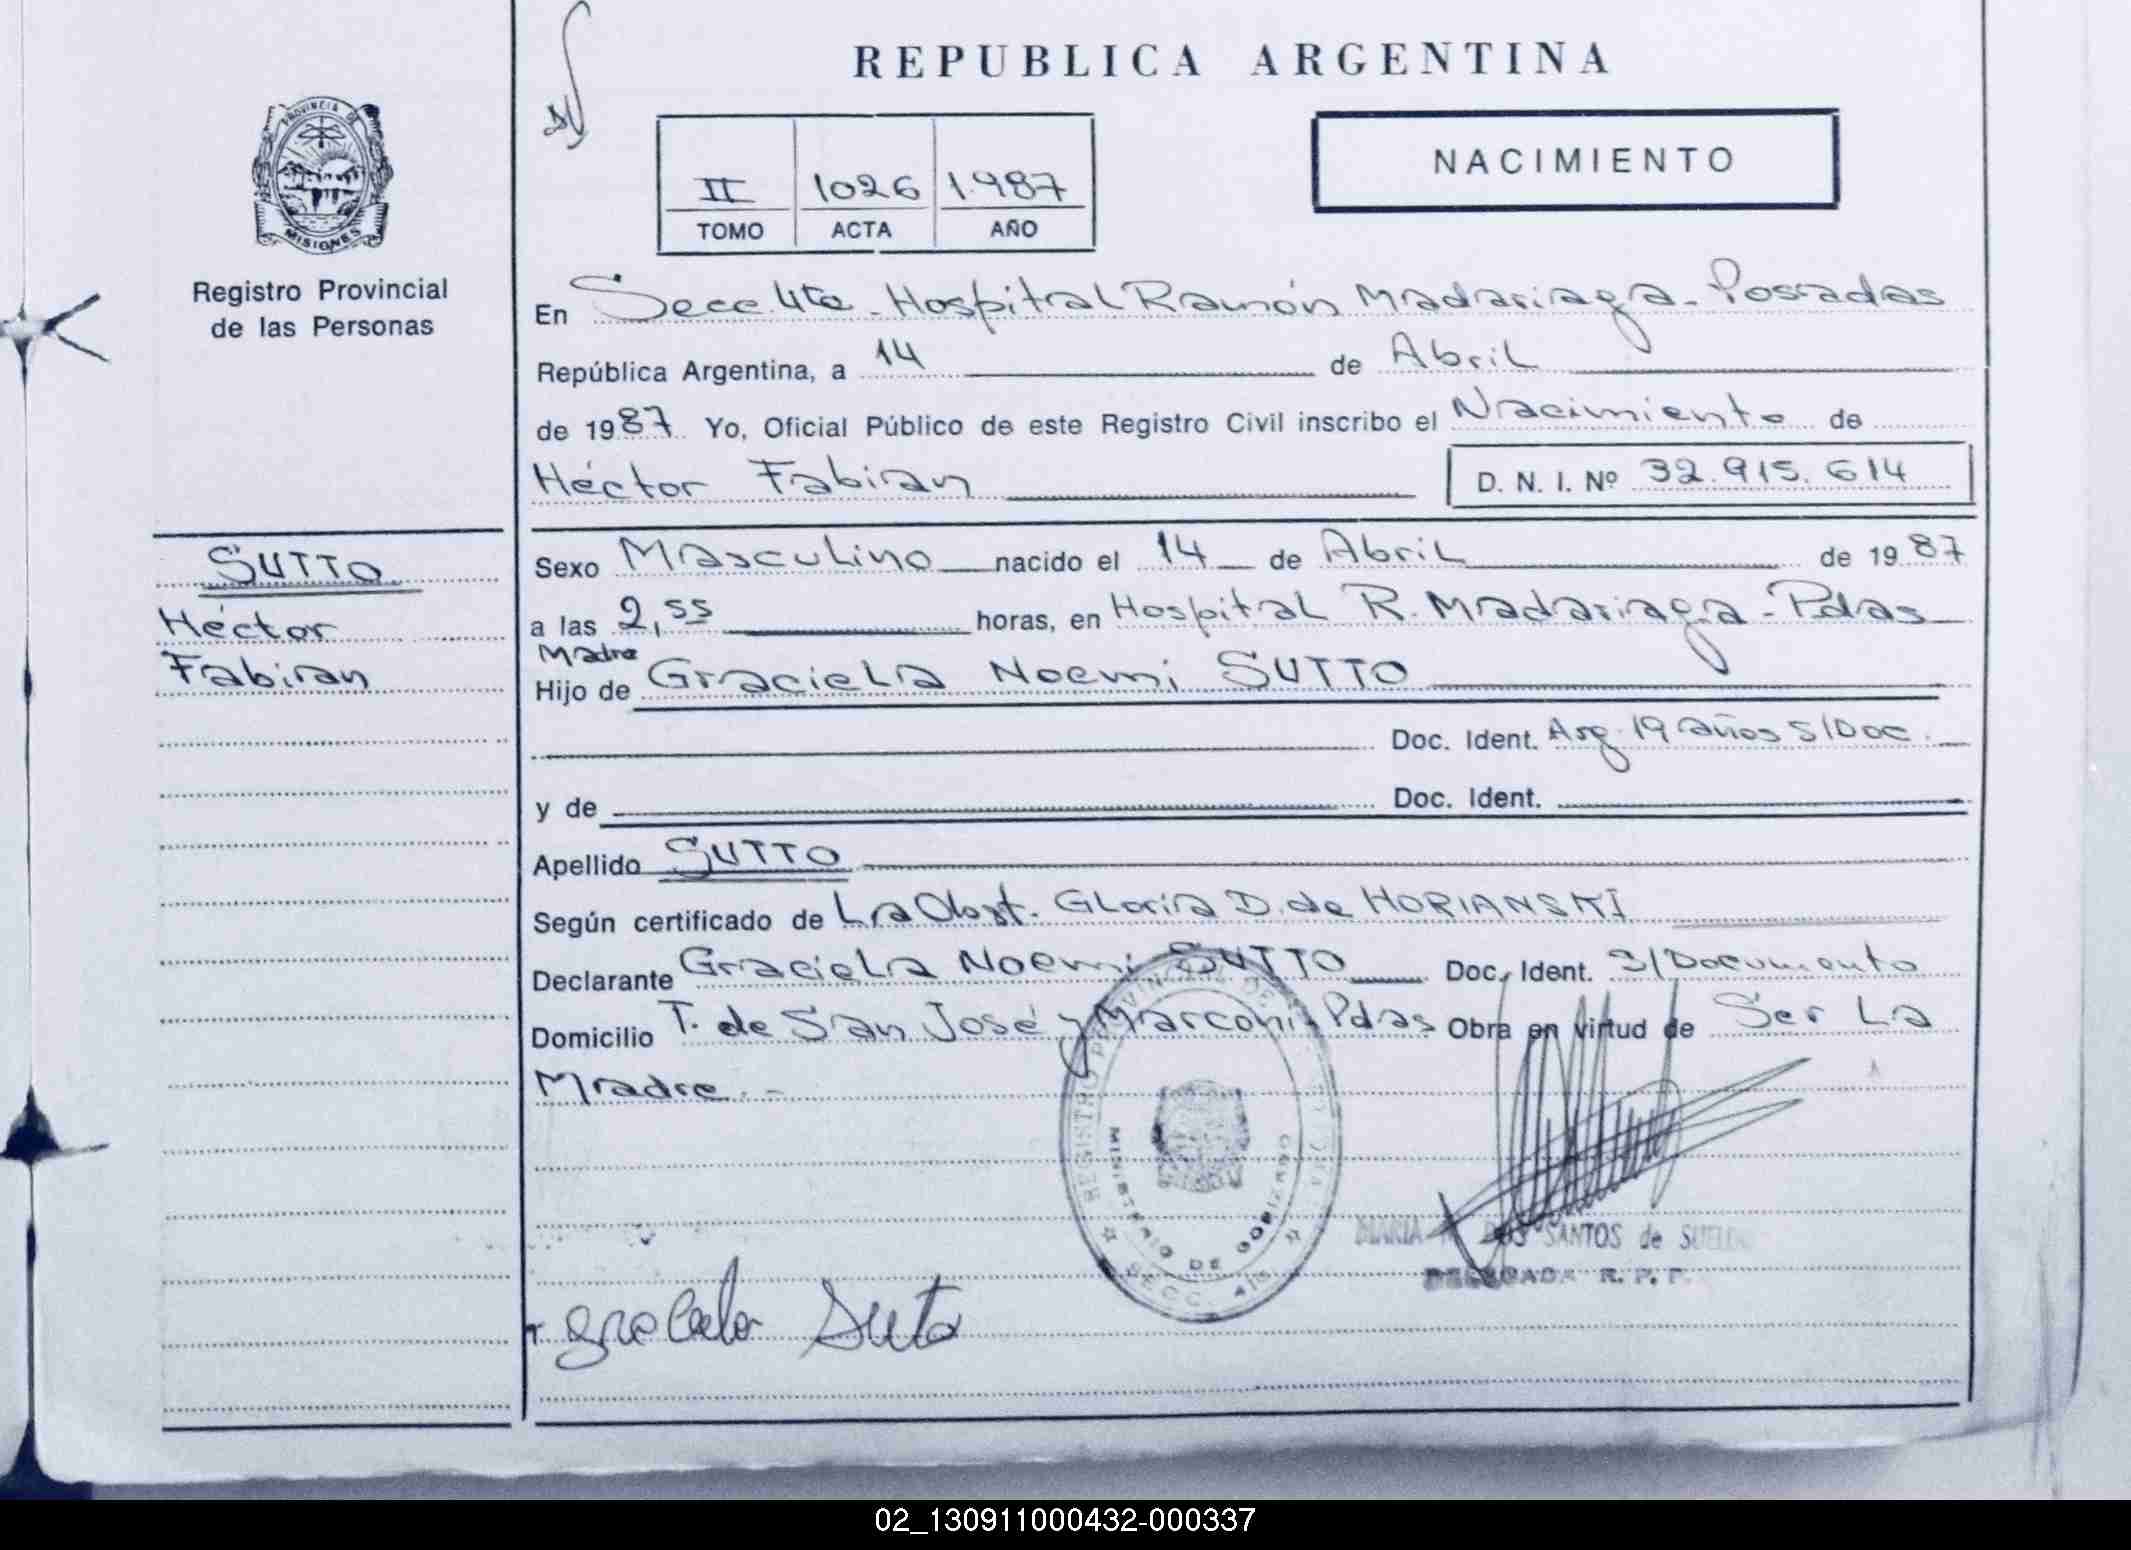 REPUBLICA ARGENTINA
PROVINCIA DE
MISIONES
Registro Provincial
de las Personas
II 1026 1.987
TOMO ACTA AÑO
NACIMIENTO
En Secc. 4ta - Hospital Ramón Madariaga - Posadas
República Argentina, a 14 de Abril
de 1987 Yo, Oficial Público de este Registro Civil inscribo el Nacimiento de
Héctor Fabian D. N. I. Nº 32.915.614
SUTTO
Héctor
Fabian
Sexo Masculino nacido el 14 de Abril de 1987
a las 2,55 horas, en Hospital R. Madariaga - Pdas
Madre
Hijo de Graciela Noemi SUTTO
Doc. Ident. Arg. 19 años S/Doc.
y de Doc. Ident.
Apellido SUTTO
Según certificado de La Obst. Gloria D. de HORIANSKI
Declarante Graciela Noemi SUTTO Doc. Ident. S/Documento
Domicilio T. de San José y Marconi - Pdas Obra en virtud de Ser La
Madre. -
REGISTRO PROVINCIAL DE
MINISTERIO DE GOBIERNO
SECC. 4ta
MARIA DOS SANTOS de
DELEGADA R. P. P.
Suto
02_130911000432-000337